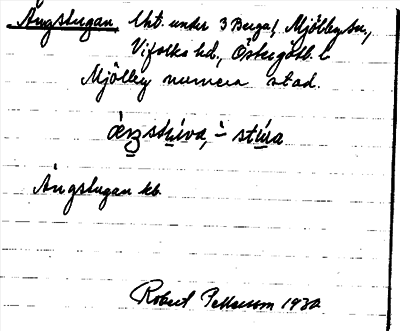 Ängstugan, lht. under 3 Berga, Mjölby sn,
Vifolka hd, Östergötl. l
Mjölby numera stad.
Ängstugan kb.
Robert Pettersson 1930